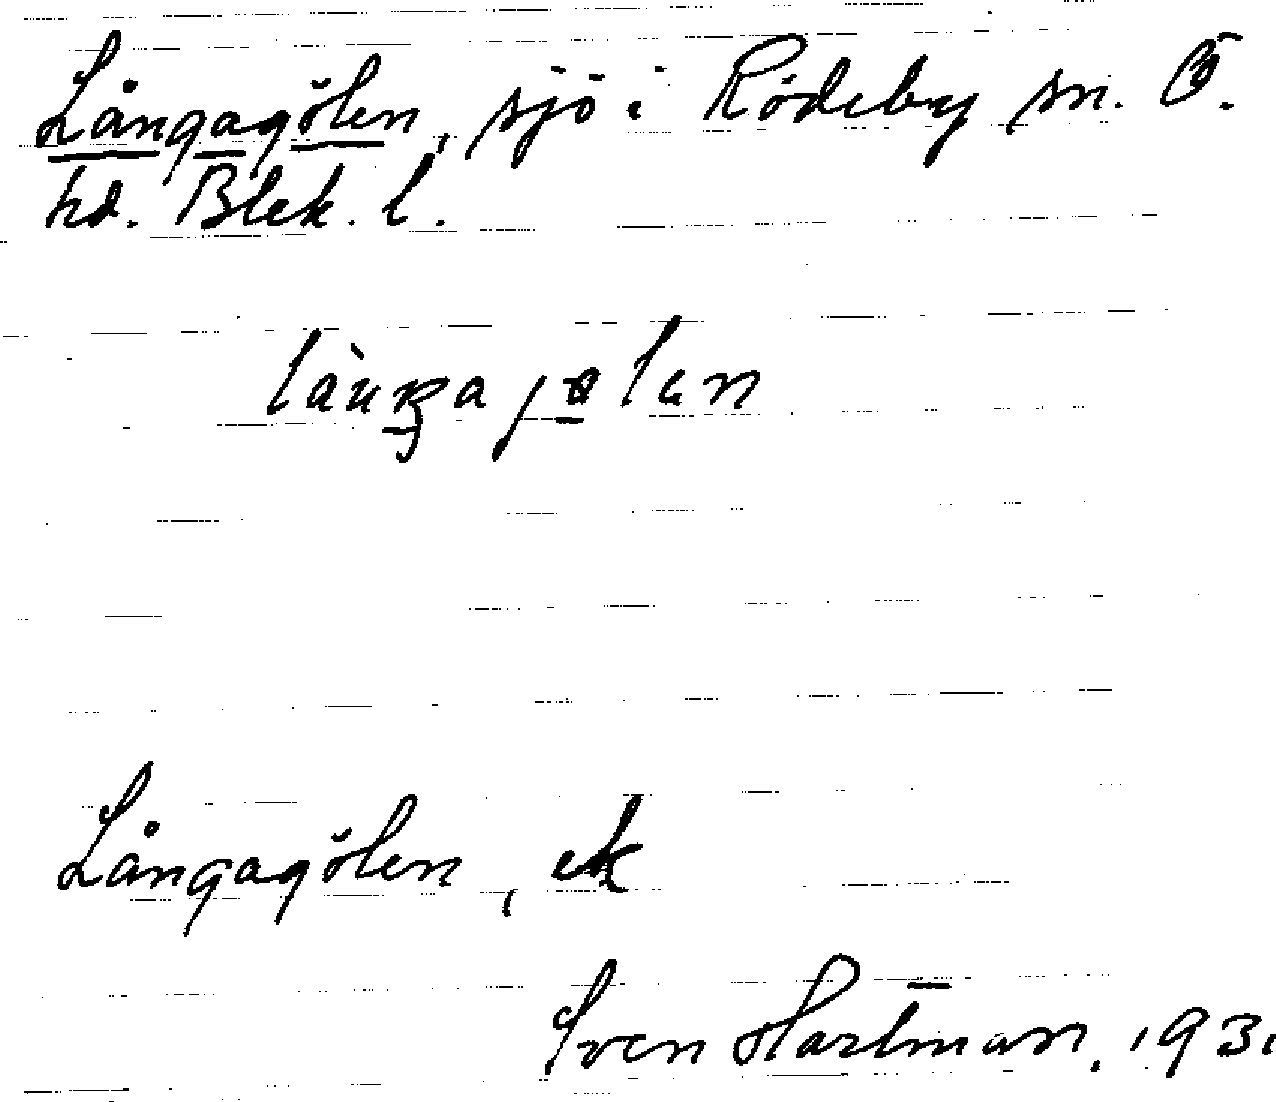 Långagölen, sjö i Rödeby sn. Ö.
hd. Blek. l.
Långagölen, ek
Sven Hartman. 1931